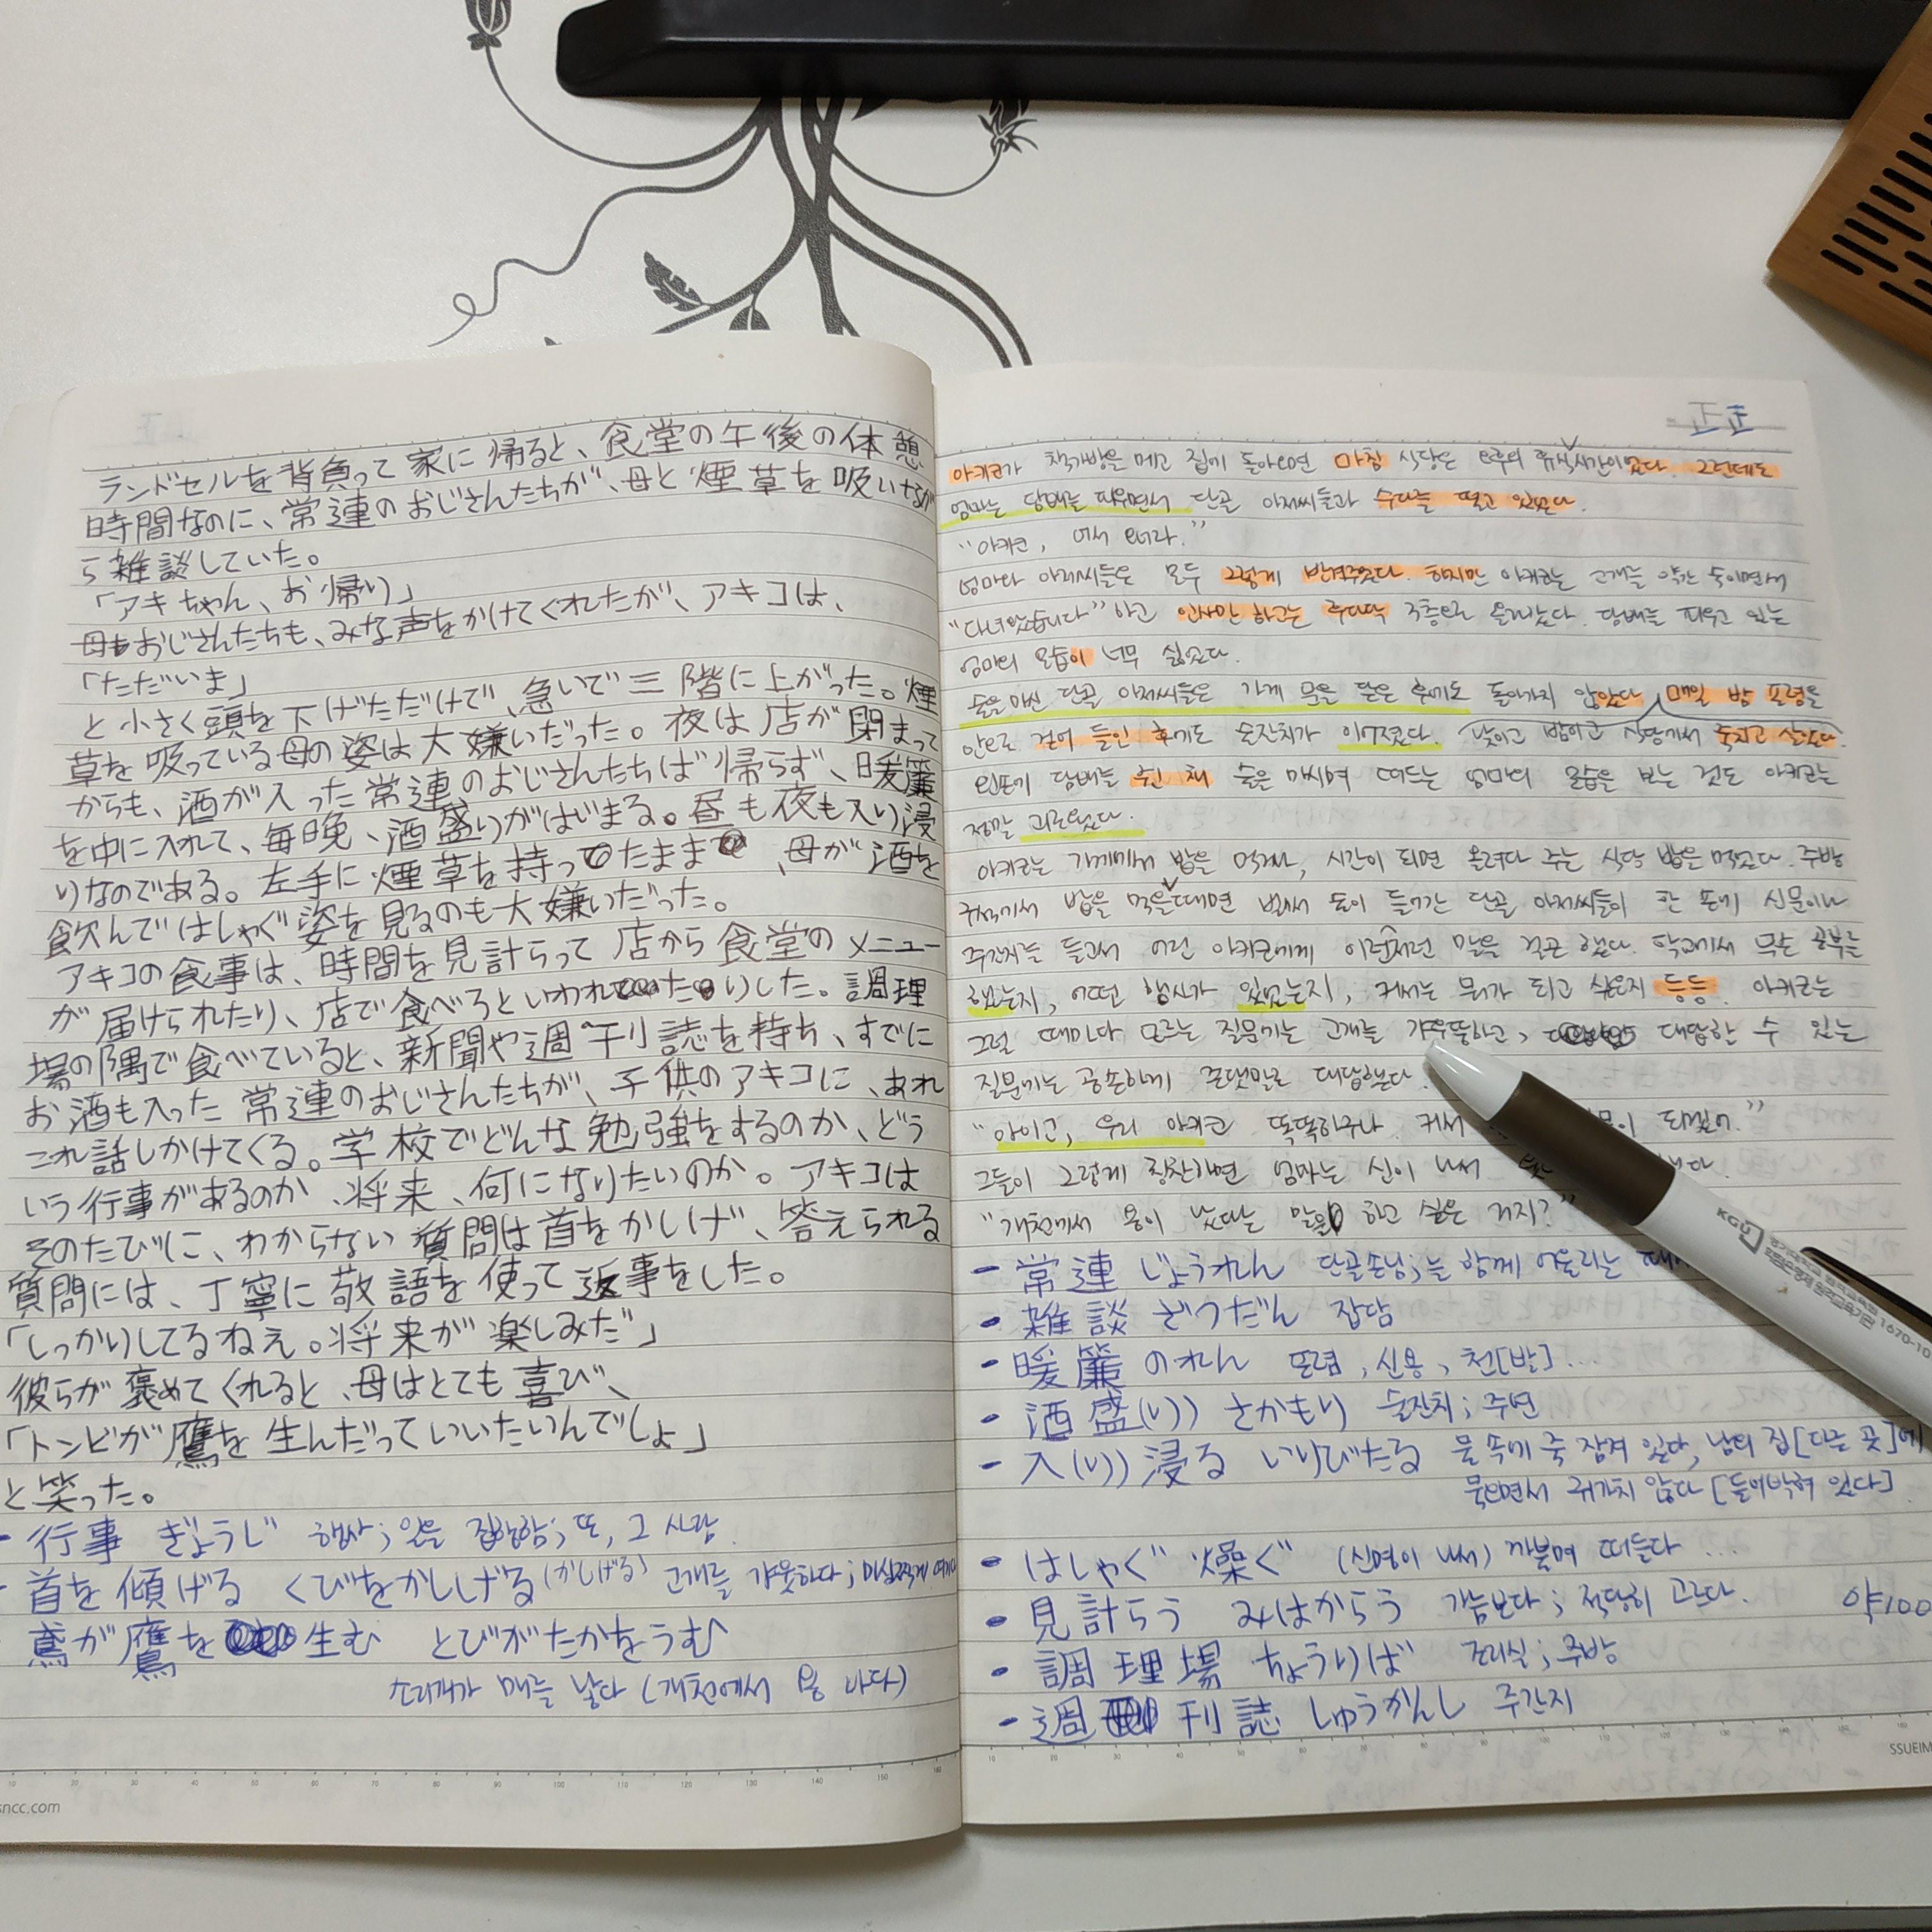 ランドセルを背負って家に帰ると、食堂の午後の休憩
時間なのに、常連のおじさんたちが、母と煙草を吸いなが
ら雑談していた。
「アキちゃん、お帰り」
母もおじさんたちも、みな声をかけてくれたが、アキコは、
「ただいま」
と小さく頭を下げただけで、急いで三階に上がった。煙
草を吸っている母の姿は大嫌いだった。夜は店が閉まって
からも、酒が入った常連のおじさんたちは帰らず、暖簾
を中に入れて、毎晩、酒盛りがはじまる。昼も夜も入り浸
りなのである。左手に煙草を持ったまま、母が酒を
飲んではしゃぐ姿を見るのも大嫌いだった。
アキコの食事は、時間を見計らって店から食堂のメニュー
が届けられたり、店で食べろといわれたりした。調理
場の隅で食べていると、新聞や週刊誌を持ち、すでに
お酒も入った常連のおじさんたちが、子供のアキコに、あれ
これ話しかけてくる。学校でどんな勉強をするのか、どう
いう行事があるのか、将来、何になりたいのか。アキコは
そのたびに、わからない質問は首をかしげ、答えられる
質問には、丁寧に敬語を使って返事をした。
「しっかりしてるねえ。将来が楽しみだ」
彼らが褒めてくれると、母はとても喜び、
「トンビが鷹を生んだっていいたいんでしょ」
と笑った。
- 行事 ぎょうじ 행사; 일을 집행함; 또, 그 사람
- 首を傾げる くびをかしげる(かしげる) 고개를 갸웃하다; 미심쩍게 여기다
- 鳶が鷹を生む とびがたかをうむ
소리개가 매를 낳다 (개천에서 용 나다)
sncc.com
아키코가 책가방을 메고 집에 돌아오면 마침 식당은 오후의 휴식시간이었다. 그런데도
엄마는 담배를 피우면서 단골 아저씨들과 수다를 떨고 있었다.
"아키코, 어서 오너라."
엄마와 아저씨들은 모두 그렇게 반겨주었다. 하지만 아키코는 고개를 약간 숙이면서
"다녀왔습니다" 하고 인사만 하고는 후다닥 3층으로 올라갔다. 담배를 피우고 있는
엄마의 모습이 너무 싫었다.
술을 마신 단골 아저씨들은 가게 문을 닫은 후에도 돌아가지 않았다 매일 밤 포렴을
안으로 걷어 들인 후에도 술잔치가 이어졌다. 낮이고 밤이고 식당에서 죽치고 살았다.
왼손에 담배를 쥔 채 술을 마시며 떠드는 엄마의 모습을 보는 것도 아키코는
정말 괴로웠다.
아키코는 가게에서 밥을 먹거나, 시간이 되면 올려다 주는 식당 밥을 먹었다. 주방
구석에서 밥을 먹을 때면 벌써 술이 들어간 단골 아저씨들이 한 손에 신문이나
주간지를 들고서 어린 아키코에게 이런저런 말을 걸곤 했다. 학교에서 무슨 공부를
했는지, 어떤 행사가 있었는지, 커서는 뭐가 되고 싶은지 등등. 아키코는
그럴 때마다 모르는 질문에는 고개를 갸우뚱하고, 대답할 수 있는
질문에는 공손하게 존댓말로 대답했다.
"아이고, 우리 아키코 똑똑하구나. 커서 되겠어."
그들이 그렇게 칭찬하면 엄마는 신이 나서
"개천에서 용이 났다는 말을 하고 싶은 거지?"
- 常連 じょうれん 단골손님; 늘 함께 어울리는
- 雑談 ざつだん 잡담
- 暖簾 のれん 포렴, 신용, 천[발]...
- 酒盛(り) さかもり 술잔치; 주연
- 入(り)浸る いりびたる 물 속에 죽 잠겨 있다, 남의 집[다른 곳]에
묵으면서 귀가치 않다 [틀어박혀 있다]
- はしゃぐ 燥ぐ (신명이 나서) 까불며 떠들다 ...
- 見計らう みはからう 가늠보다; 적당히 고르다.
- 調理場 ちょうりば 조리실; 주방
- 週刊誌 しゅうかんし 주간지
약100
KGU
1670-10
SSUEIM